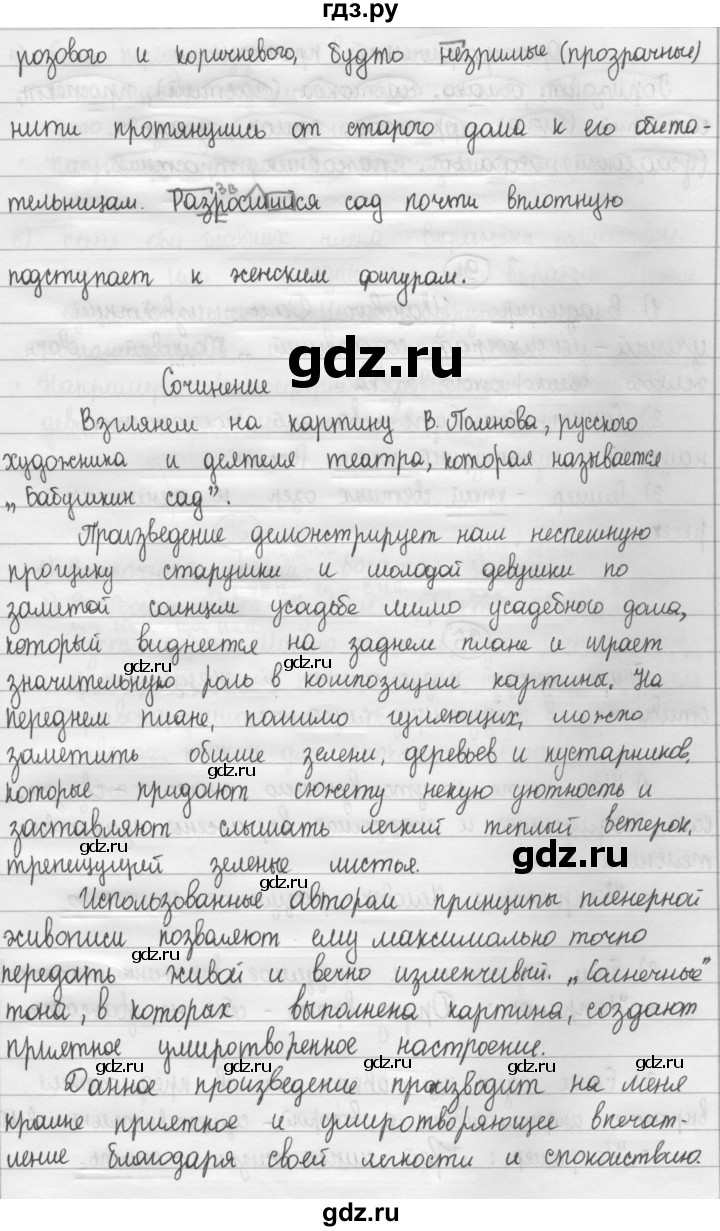 гдз.ру
розового и коричневого, будто незримые (прозрачные)
нити протянулись от старого дома к его обита-
тельницам. Разросшийся сад почти вплотную
зв
подступает к женским фигурам.
gdz.ru
Сочинение
Взглянем на картину В. Поленова, русского
художника и деятеля театра, которая называется
„Бабушкин сад".
Произведение демонстрирует нам неспешную
прогулку старушки и молодой девушки по
залитой солнцем усадьбе мимо усадебного дома,
который виднеется на заднем плане и играет
gdz.ru gdz.ru
значительную роль в композиции картины. На
переднем плане, помимо гуляющих, можно
заметить обилие зелени, деревьев и кустарников,
gdz.ru gdz.ru
которые придают сюжету некую уютность и
заставляют слышать легкий теплый ветерок,
gdz.ru gdz.ru
трепещущий зеленые листья.
gdz.ru
Использованные автором принципы пленерной
живописи позволяют ему максимально точно
gdz.ru
передать живой и вечно изменчивый. „Солнечные"
gdz.ru gdz.ru
тона, в которых выполнена картина, создают
приятное умиротворенное настроение.
gdz.ru gdz.ru gdz.ru
Данное произведение производит на меня
крайне приятное и умиротворяющее впечат-
gdz.ru gdz.ru
ление благодаря своей легкости и спокойствию.
gdz.ru gdz.ru
gdz.ru